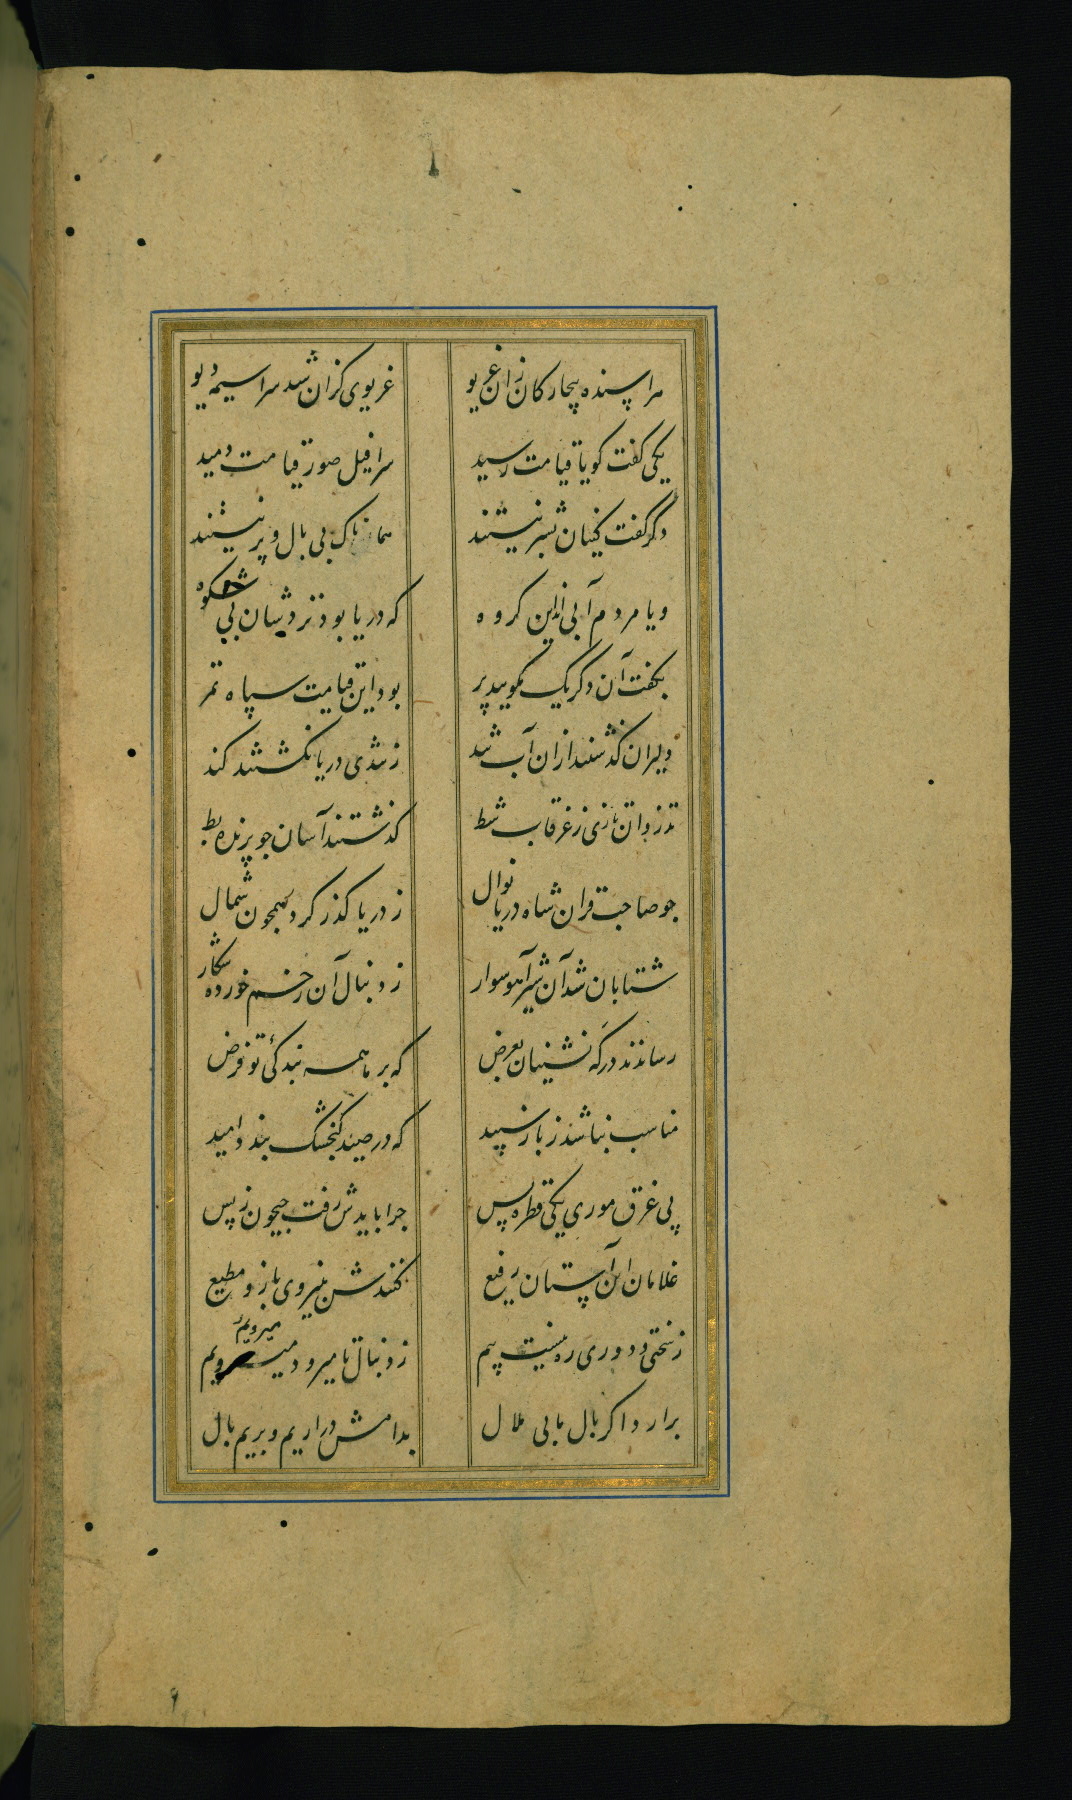 هراسنده بیچارکان زان غریو غریوی کزان شد سراسیمه دیو
یکی کفت کویا قیامت رسید سرافیل صور قیامت دمید
دکر کفت کینان بشر نیستند همانا ملک بی بال و پر نیستند
و یا مردم آبی اند این کروه که دریا بود نزدشان بی شکوه
بکفت آن دکر یک مکویید پر بود این قیامت سپاه تمر
دلیران کذشتند از ان آب شد ز تندی دریا نکشتند کند
تذروان تازی ز غرقاب شط کذشتند آسان جو پرنده بط
جو صاحب قران شاه دریا نوال ز دریا کذر کرد همجون شمال
شتابان شد آن شیر آهو سوار ز دنبال آن زخم خورده شکار
رساندند درکه نشینان بعرض که بر ما همه بندکئ تو فرض
مناسب نباشد ز باز سپید که در صید کنجشک بندد امید
پی غرق موری یکی قطره بس جرا بایدش رفت جیحون ز پس
غلامان این آستان رفیع کنندش بنیروی بازو مطیع
ز سختی و دوری ره نیست بیم ز دنبال تا میرود میرویم میرویم
برارد اکر بال با بی ملال بدامش دراریم و بریم بال